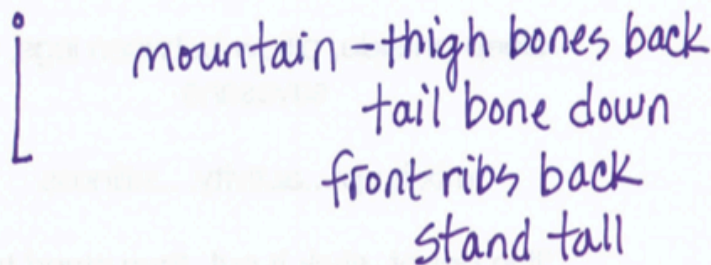 mountain - thigh bones back
tail bone down
front ribs back
stand tall